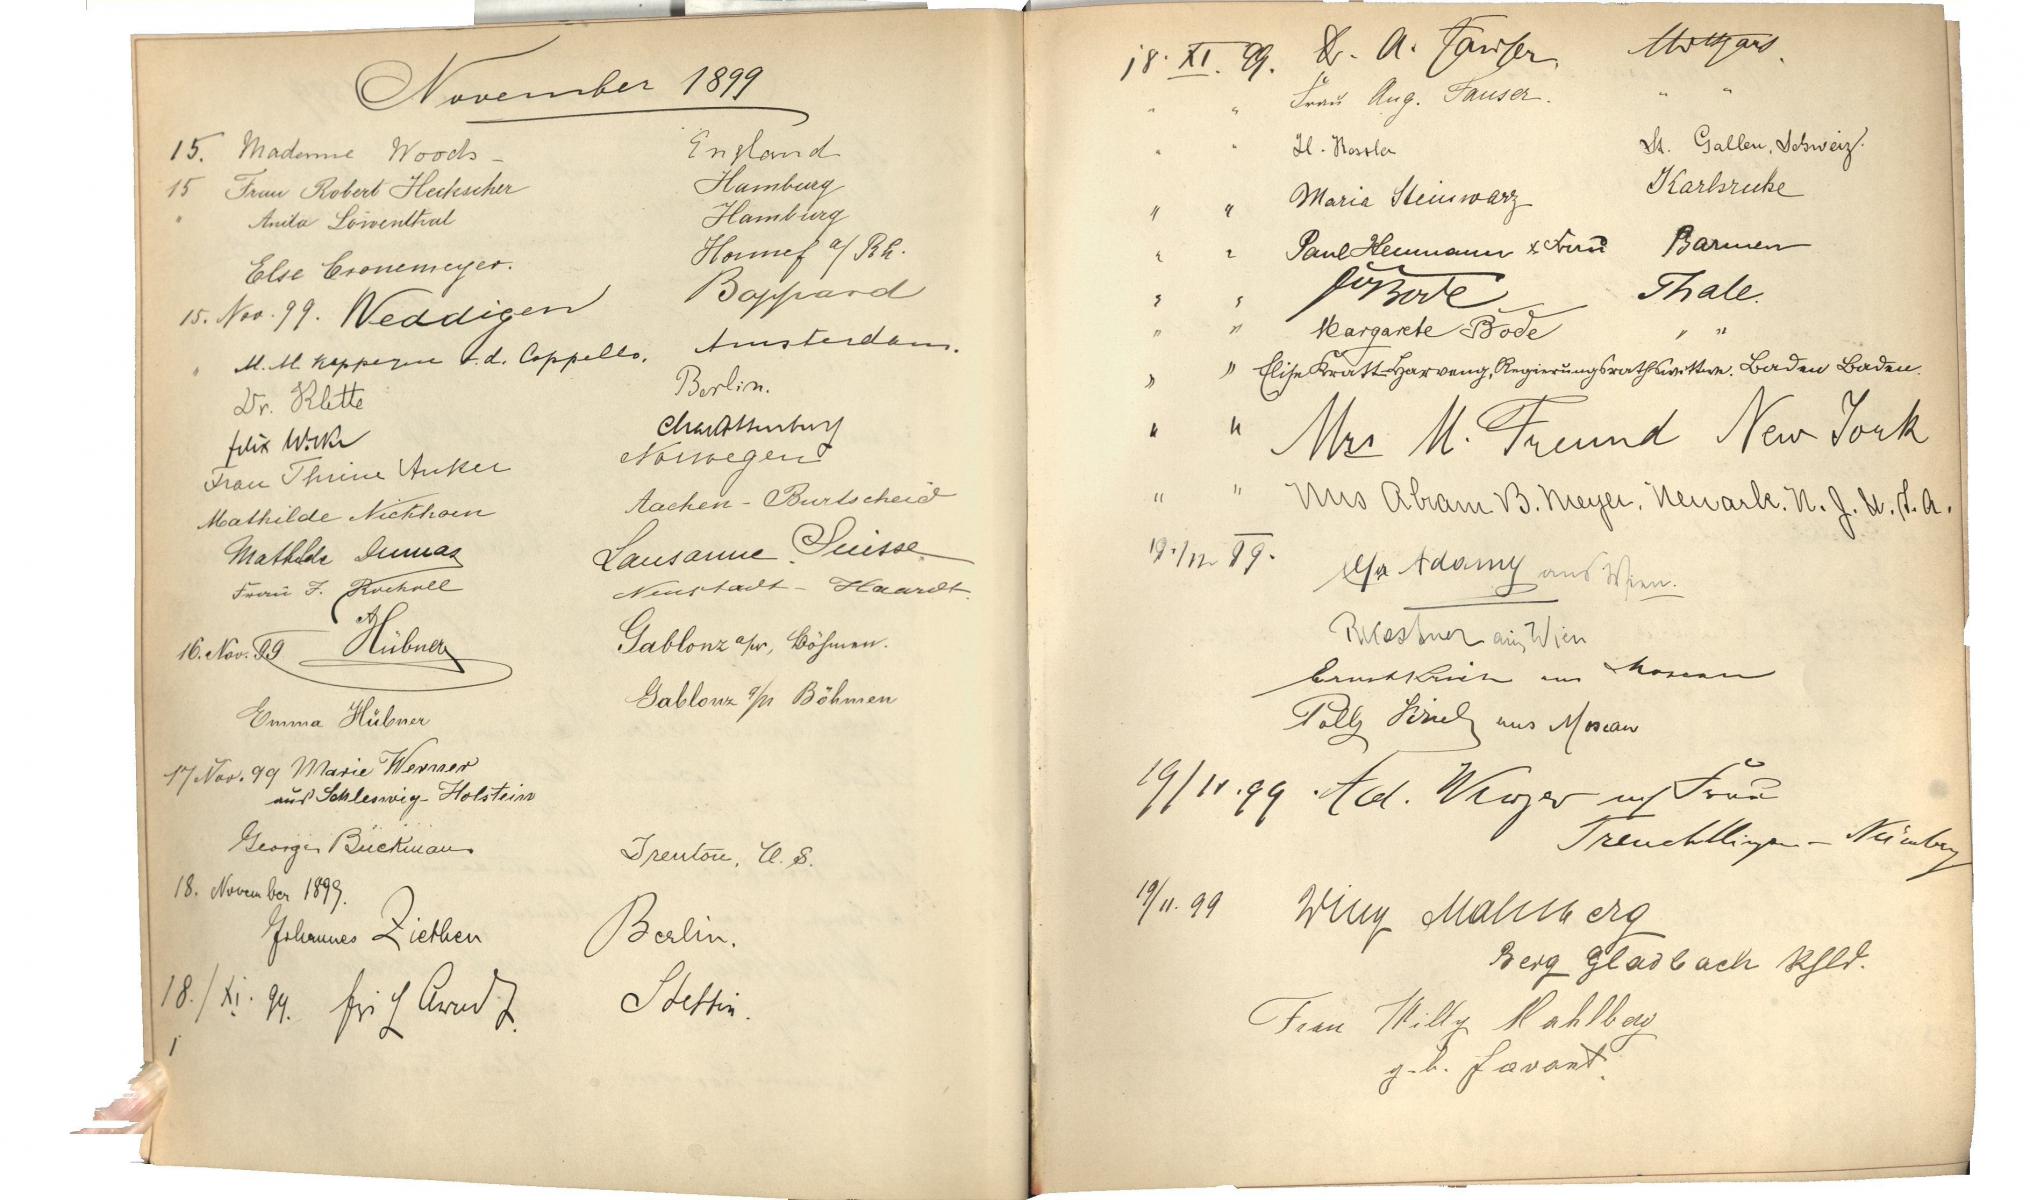 November 1899
15. Madame Woods - England
15 Frau Robert Heckscher Hamburg
" Anita Löwenthal Hamburg
Else Cronemeyer. Honnef a/Rh.
15. Nov. 99. Weddigen Boppard
" M. M. v. d. Cappello. Amsterdam.
Dr. Klette Berlin.
Felix Charlottenburg
Frau Thrine Anker Norwegen
Mathilde Aachen - Burtscheid
Mathilde Dumas Lausanne. Suisse
Frau F. Rocholl Neustadt - Haardt.
16. Nov. 99 A. Hübner Gablonz a/N, Böhmen.
Emma Hübner Gablonz a/N Böhmen
17 Nov. 99 Marie Werner
aus Schleswig-Holstein
Georg Bückmann Trenton, U. S.
18. November 1899.
Johannes Ziethen Berlin.
18./XI. 99. Stettin.
1
18. XI. 99. Dr. A. Fauser,
" " Frau Aug. Fauser. " "
" " St. Gallen, Schweiz.
" " Maria Steinwarz Karlsruhe
" " Paul Heumann & Frau Barmen
" " Bode Thale.
" " Margarete Bode " "
" " Elise Kratt-Harveng, Regierungsrathswittwe. Baden Baden.
" " Mrs M. Freund New York
" " Mrs Abram B. Meyer. Newark. N. J. U. S. A.
99. Adamy aus Wien.
aus Wien
Ernst aus Moscau
Polly aus Moscau
19/11. 99. Ad. u/ Frau
Treuchtlingen - Nürnberg
19/11. 99 Willy Mahlberg
Berg Gladbach Rhld.
Frau Willy Mahlberg
geb. Savant.